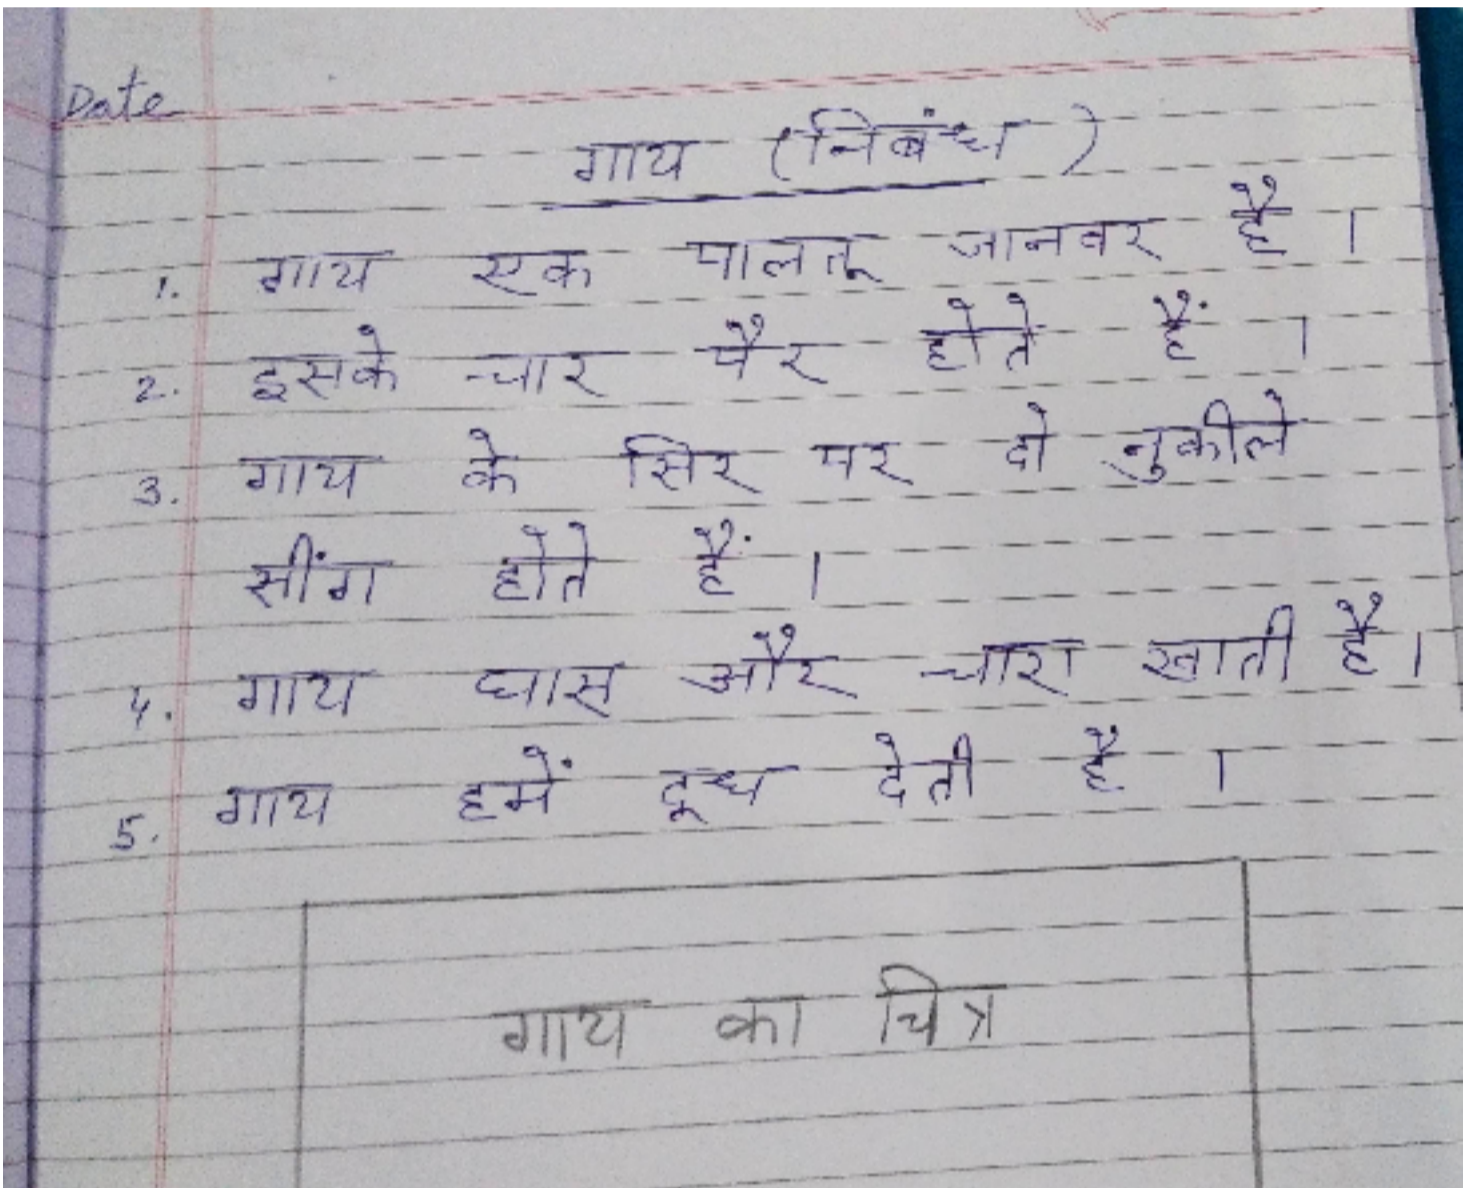 Date
गाय (निबंध)
1. गाय एक पालतू जानवर है ।
2. इसके चार पैर होते हैं ।
3. गाय के सिर पर दो नुकीले
सींग होते हैं ।
4. गाय घास और चारा खाती है ।
5. गाय हमें दूध देती है ।
गाय का चित्र